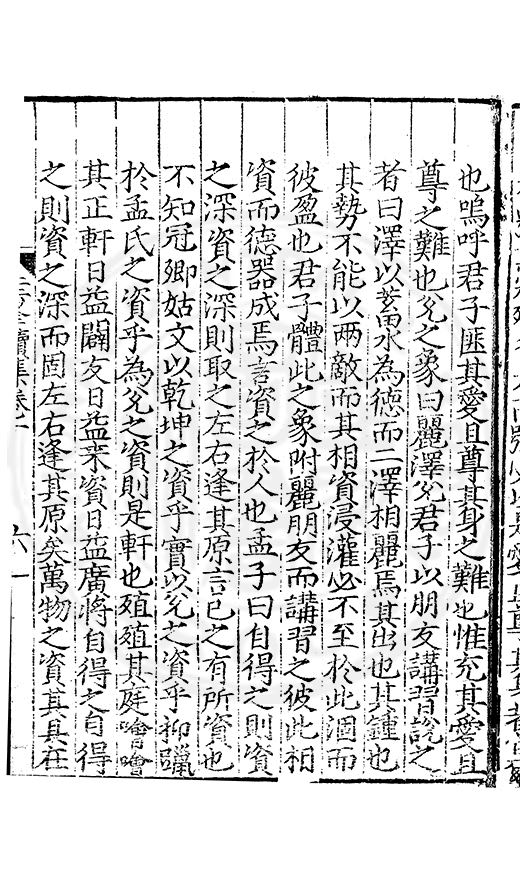 也嗚呼君子匪其愛且尊其身之難也惟充其愛且
尊之難也兊之象曰麗澤兊君子以朋友講習說之
者曰澤以蓄水為德而二澤相麗焉其出也其鍾也
其勢不能以兩敵而其相資浸灌必不至於此涸而
彼盈也君子體此之象附麗朋友而講習之彼此相
資而德器成焉言資之於人也孟子曰自得之則資
之深資之深則取之左右逢其原言已之有所資也
不知冠卿姑文以乾坤之資乎實以兊之資乎抑躐
於孟氏之資乎為兊之資則是軒也殖殖其庭噲噲
其正軒日益闢友日益来資日益廣將自得之自得
之則資之深而固左右逢其原矣萬物之資其具在
續集卷一
六